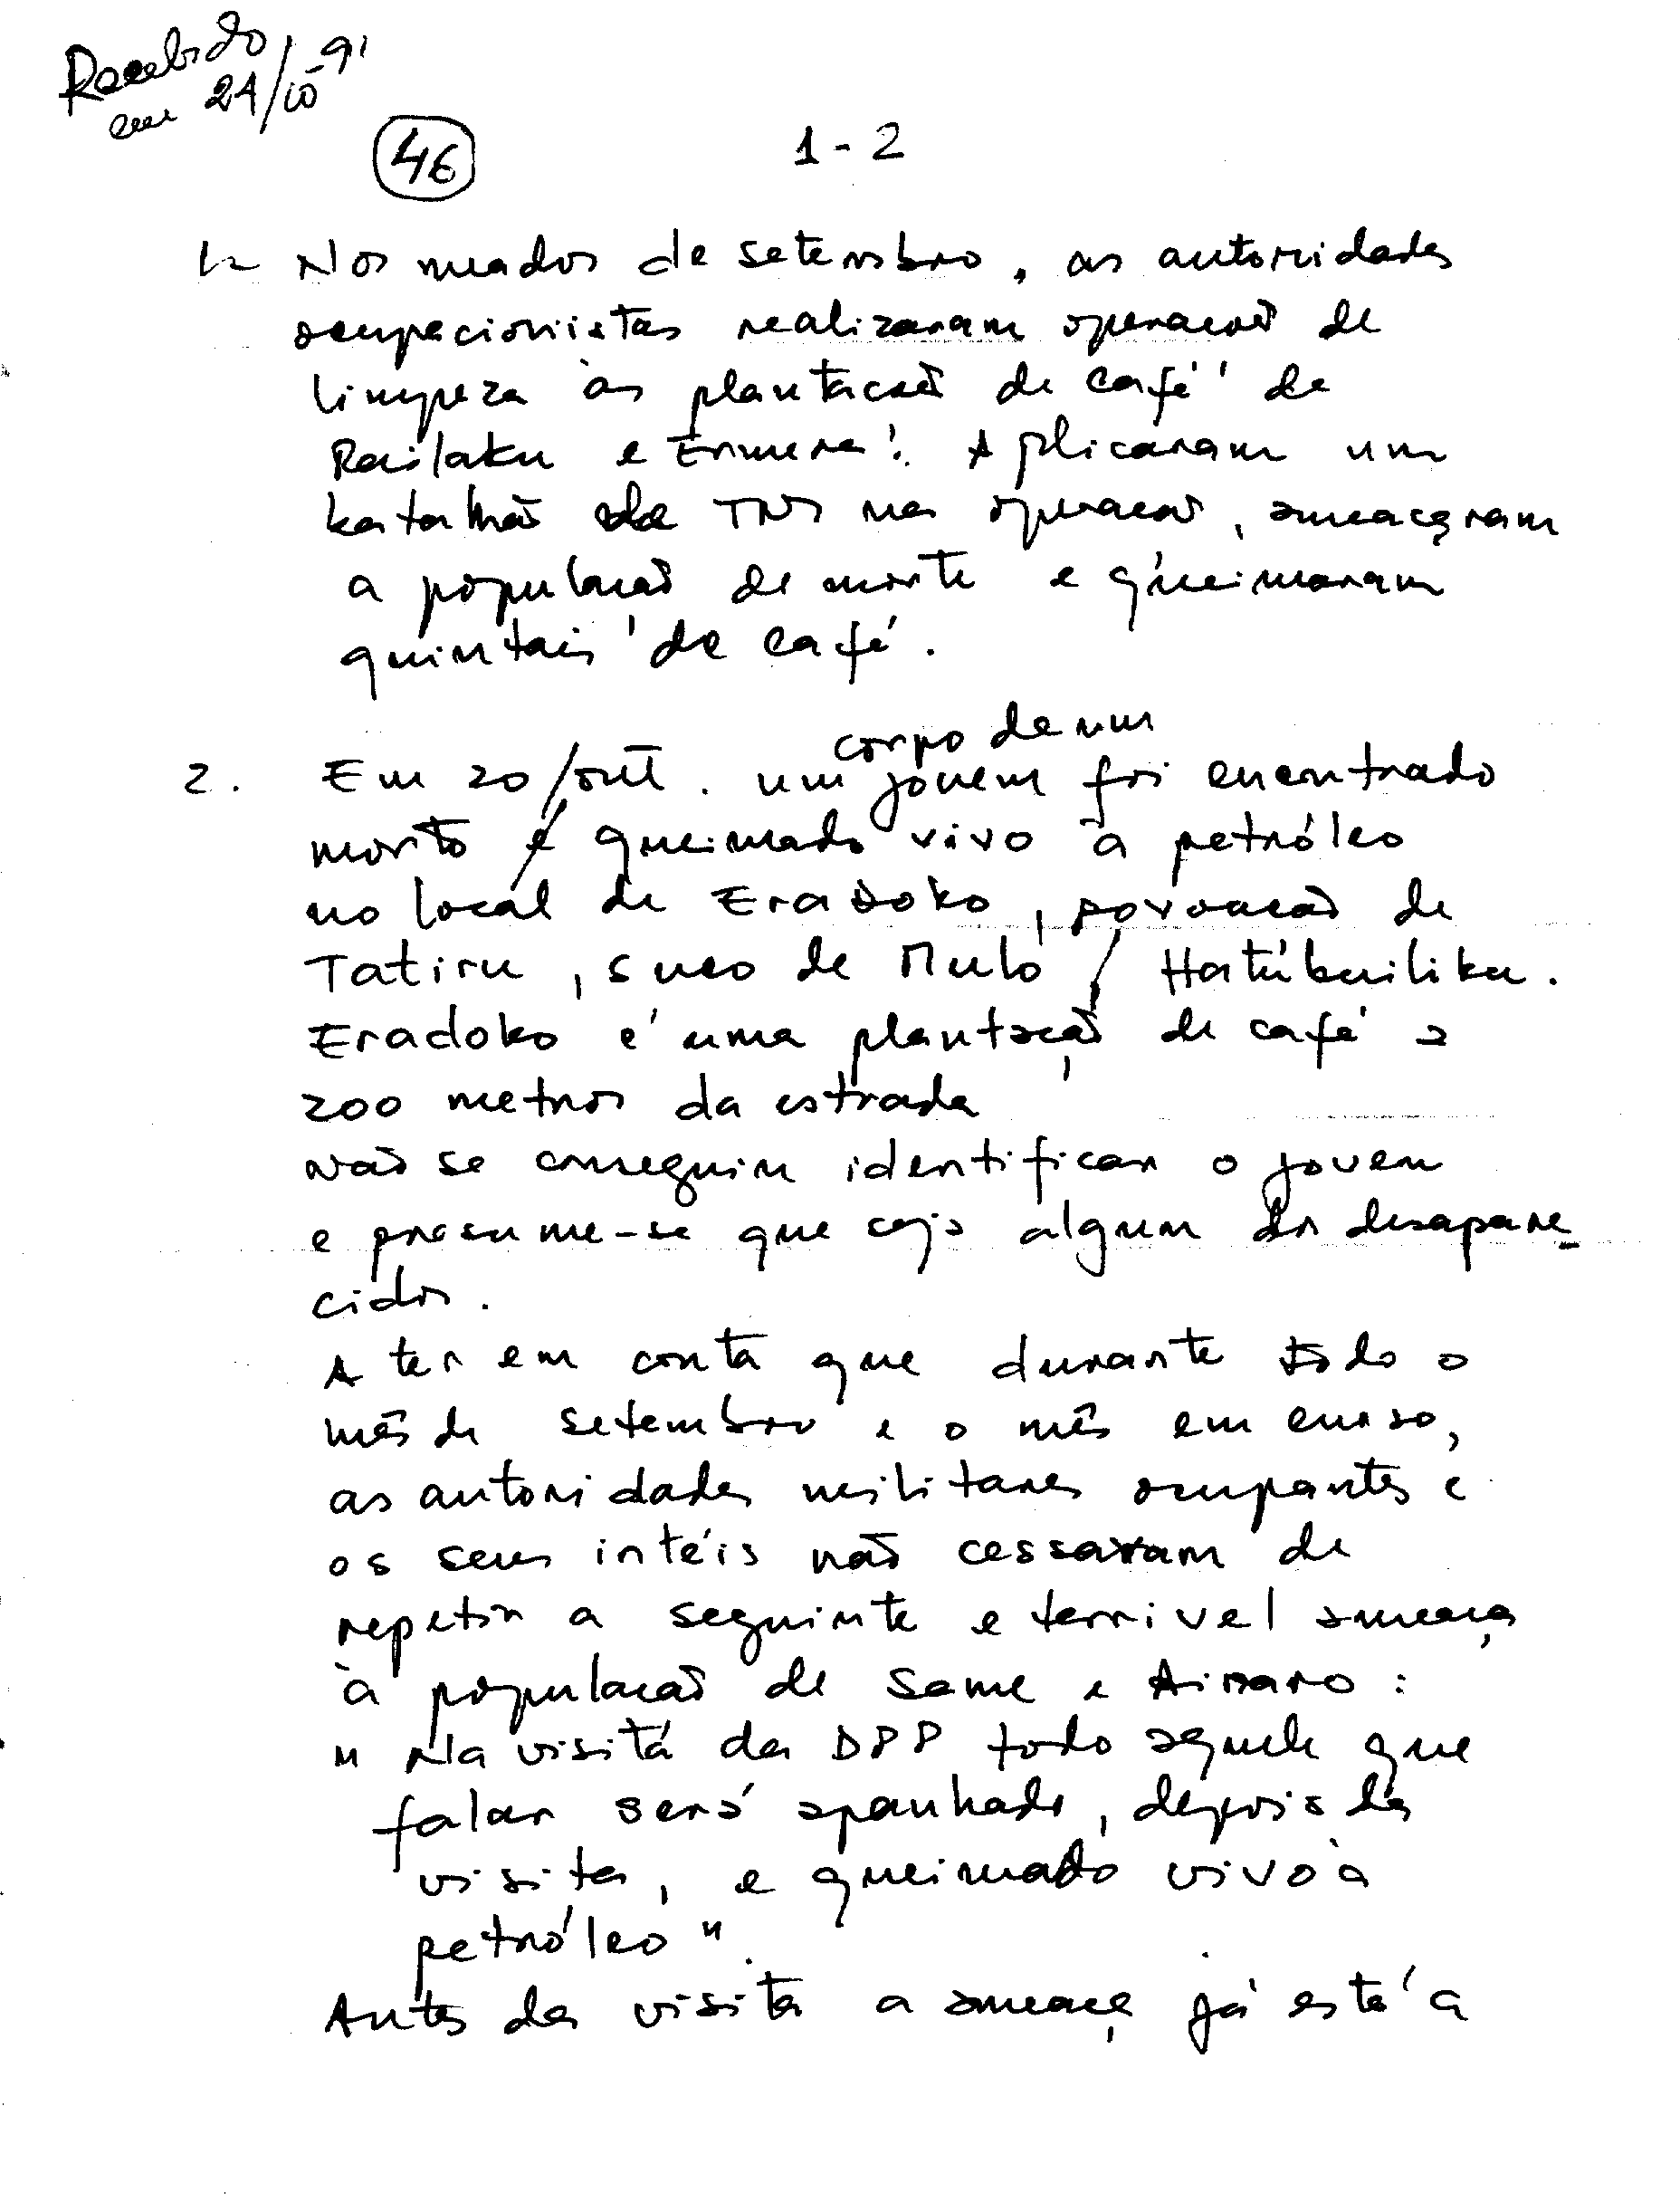 Recebido
em 24/10-91
46
1-2
1- Nos meados de setembro, as autoridades
ocupacioniistas realizaram operacão de
limpeza às plantacoẽs de café de
Railaku e Ermera! Aplicaram um
batalhão de TNI na operacão, ameaçaram
a populacão de morte e queimaram
quintais de café.
corpo de um
2. Em 20/out. um jovem foi encontrado
morto e queimado vivo à petróleo
no local de Eradoko, povoacão de
Tatiru, suco de Mulo / Hatúbuiliku.
Eradoko é uma plantação de café a
200 metros da estrada
Não se conseguiu identificar o jovem
e presume-se que seja algum dos desapare-
cidos.
A ter em conta que durante todo o
mês de setembro e o mês em curso,
as autoridades militares ocupantes e
os seus intéis não cessaram de
repetir a seguinte e terrivel ameaça
à populacão de Same e Ainaro:
" Na visita da DPP todo aquele que
falar será apanhado, depois da
visita, e queimado vivo à
petróleo".
Antes da visita a ameaça já está a